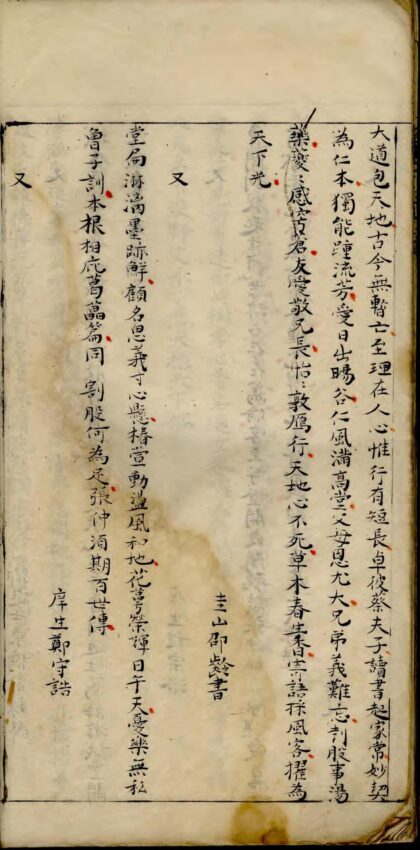 大道包天地古今無暫亡至理在人心惟行有短長卓彼蔡夫子讀書起家常妙契
為仁本獨能踵流芳愛日出暘谷仁風滿高堂父母恩尤大兄弟義難忘刲股事湯
藥夔〻感穹蒼友愛敬兄長怡〻敦鴈行天地心不死草木春生香寄語採風客擢為
天下光
圭山邵齡書
又
堂扃淋漓墨跡鮮顧名思義寸心懸椿萱動盪風和地花萼榮輝日午天憂樂無私
魯子訓本根相庇葛藟篇同割股何為足張仲須期百世傳
庠生鄭守誥
又